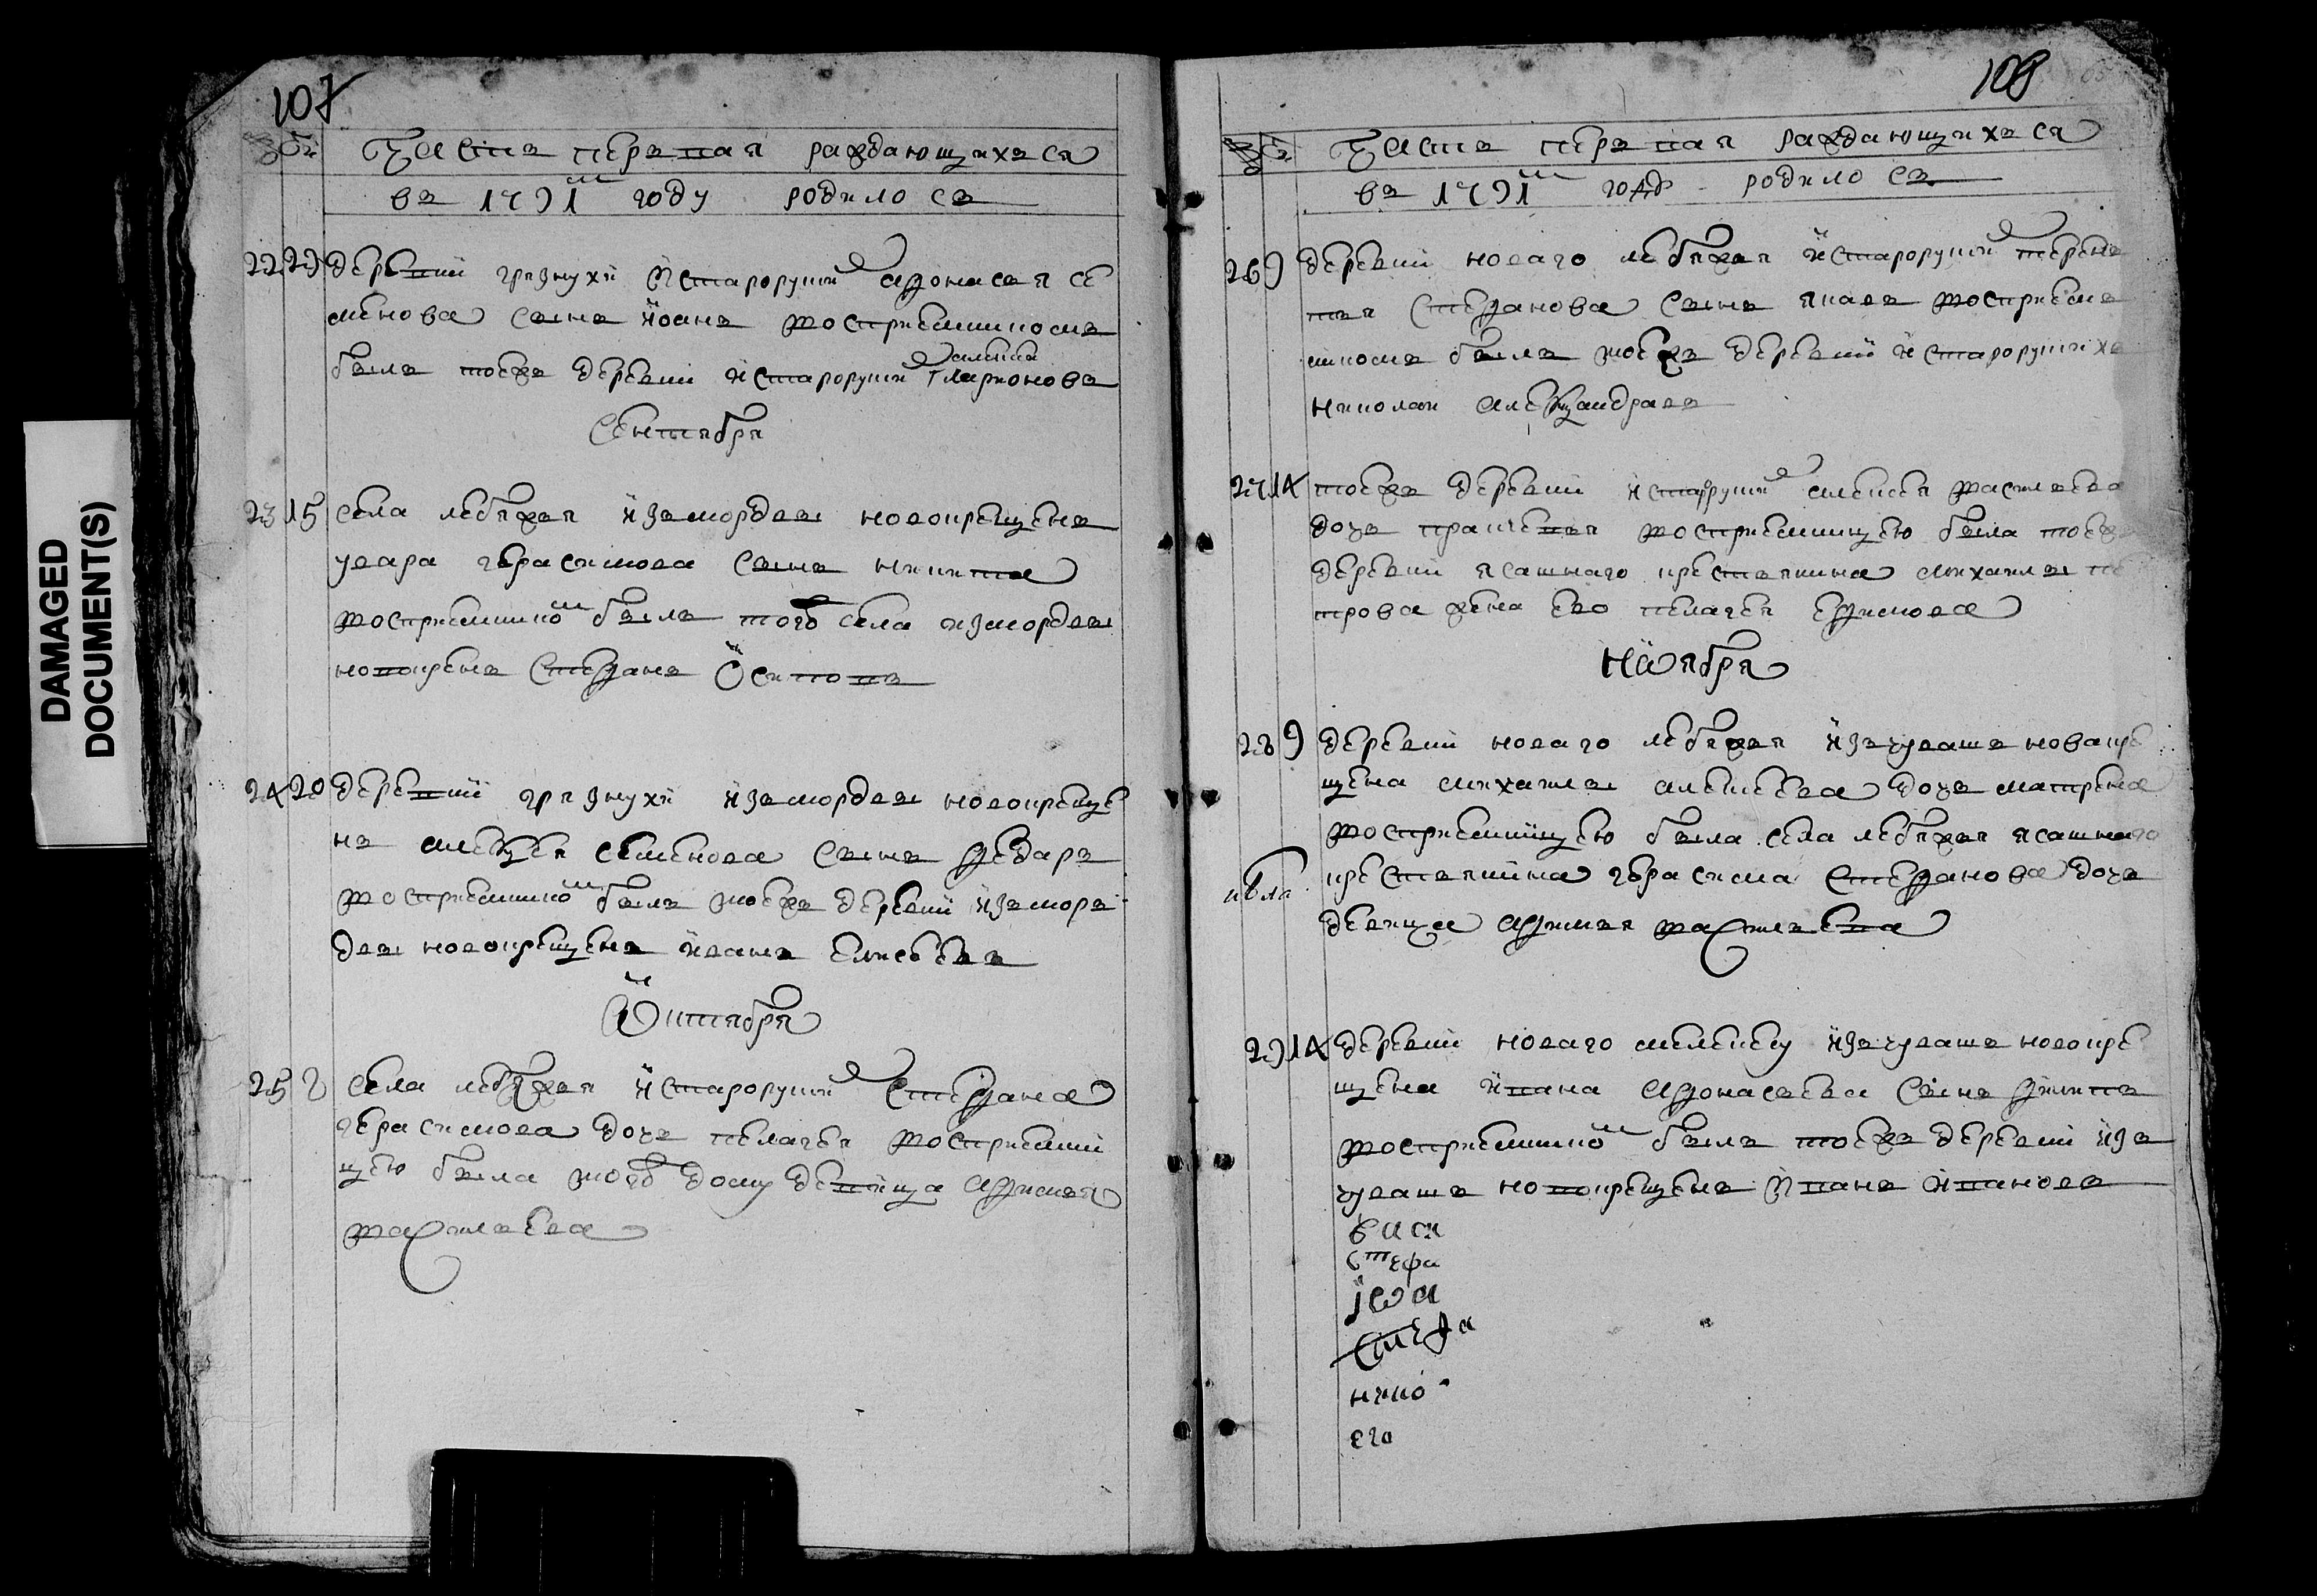 DAMAGED
DOCUMENT(S)
107
Часть первая раждающихъся
въ 1791м году родилось
22 29 деревни грязнухи истарорускихъ афонасья се
менова сынъ иоанъ восприемникомъ
былъ тоежъ деревни истарорускихъ Ларионовъ
Сентября
23 15 села лебяжья измордвы новокрещенъ
увара герасимова сынъ никита
восприемником былъ того села измордвы
новокрещенъ Стефанъ Осиповъ
24 20 деревни грязнухи измордвы новокреще
нъ алексея семенова сынъ федоръ
восприемником былъ тоежъ деревни изъмор
двы новокрещенъ иванъ елисеевъ
Октября
25 2 села лебяжья истарорускихъ Стефана
герасимова дочь пелагея восприемни
цею была того дому девица афимья
васильева
108
Часть первая раждающихъся
въ 1791м году родилось
26 9 деревни новаго лебяжья истарорускихъ терень
тья Стефанова сынъ яковъ восприем
никомъ былъ тоежъ деревни истарорускихъ
николаи александравъ
27 14 тоежъ деревни истарорускихъ алексея васильева
дочь восприемницею была тоежъ
деревни ясашнаго крестьянина михаилы пе
трова жена ево пелагея ефимова
Ноября
28 9 деревни новаго лебяжья изчувашъ новокре
щена михаилы алексеева дочь матрена
восприемницею была села лебяжья ясашнаго
крестьянина герасима Стефанова дочь
девица афимья васильева
29 14 деревни новаго изчувашъ новокре
щена ивана Афонасьева сынъ филипъ
восприемником былъ тоежъ деревни изъ
чувашъ новокрещенъ иванъ ивановъ
васи
стефа
іѡа
Стефа
нико
его